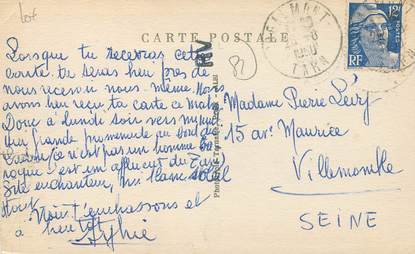 Lot
CARTE POSTALE
RV
82
TARN
12F
RF
Lorsque tu recevras cette
carte, tu seras bien près de
nous recevoir nous même. Nous
avons bien reçu ta carte ce matin
Donc à lundi soir vers minuit
grande promenade au bord du
ce n'est pas un homme
c'est un affluent du Tarn
Site enchanteur, soleil
Nous t'embrassons et
à bientôt
Madame Pierre Léry
15 av. Maurice
Villemomble
SEINE